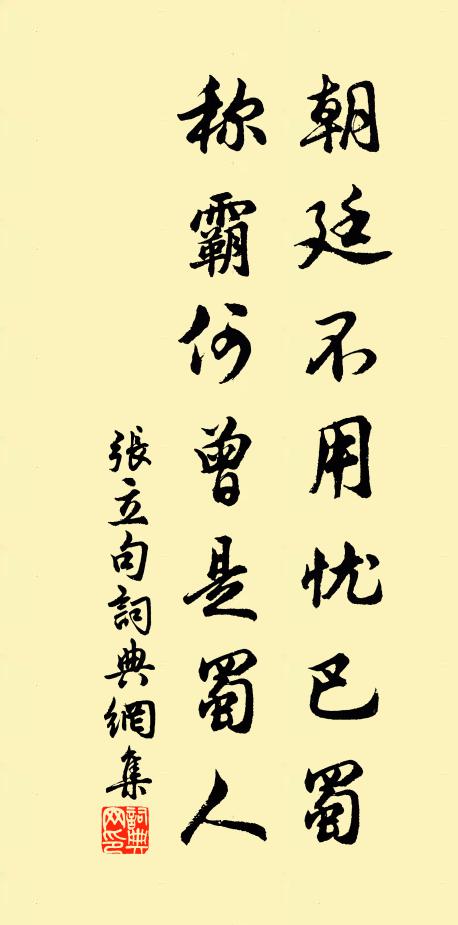 朝廷不用忧巴蜀
称霸何曾是蜀人
張立句詞典網集
詞典网印